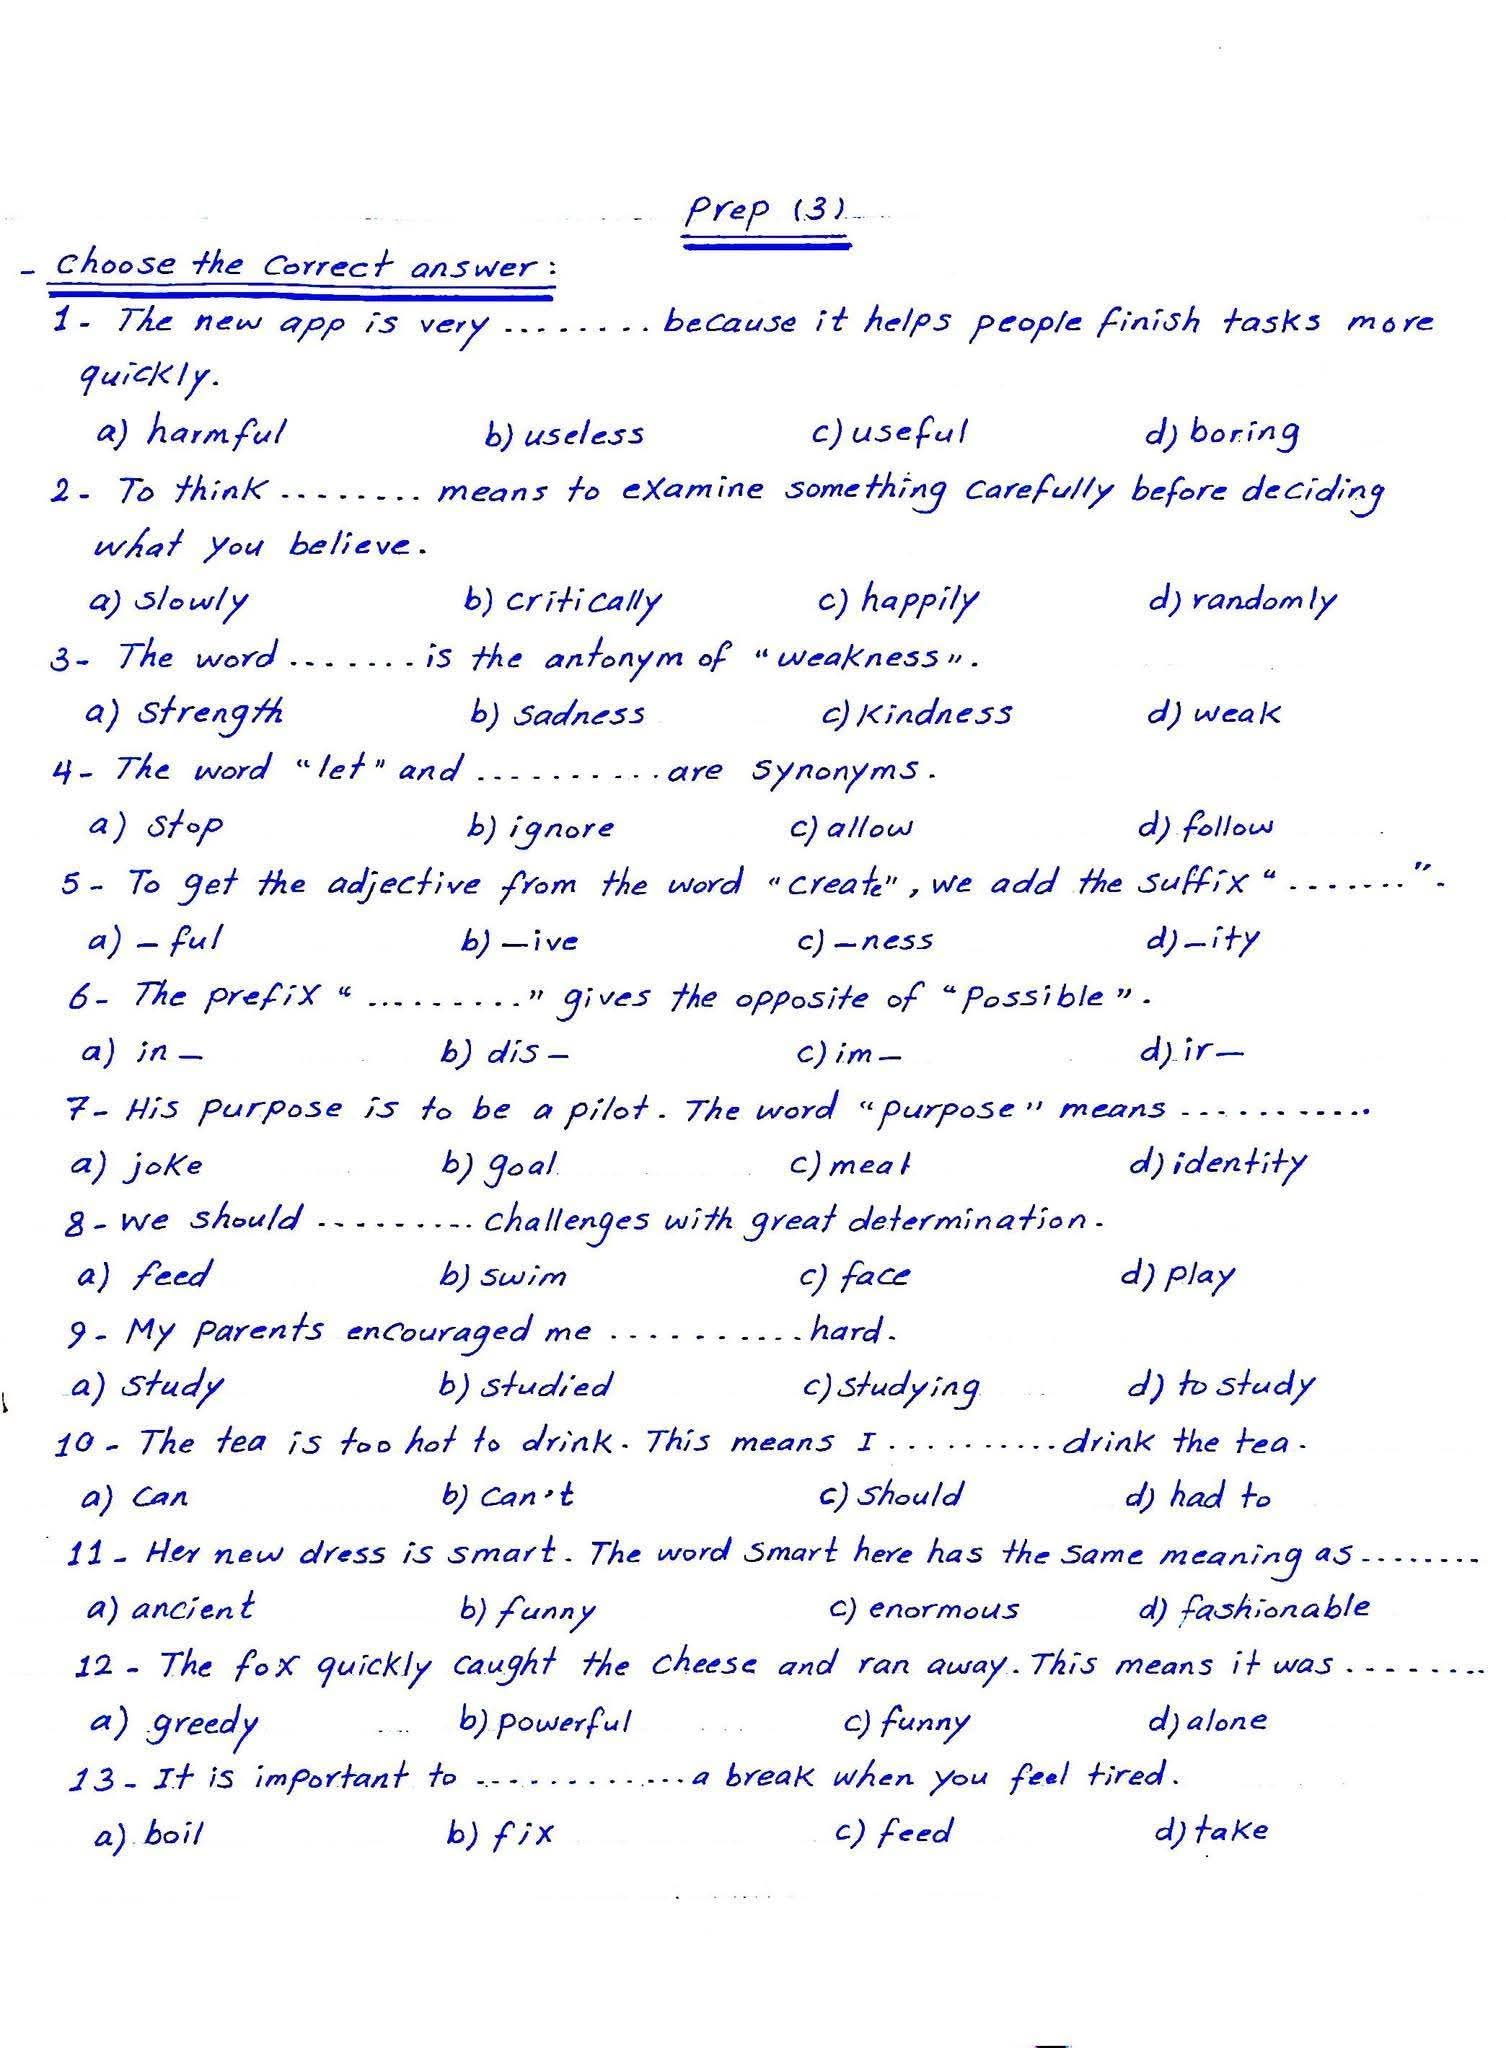 Prep (3)
- Choose the Correct answer:
1- The new app is very ........ because it helps people finish tasks more
quickly.
a) harmful b) useless c) useful d) boring
2- To think ........ means to examine something carefully before deciding
what you believe.
a) slowly b) critically c) happily d) randomly
3- The word ....... is the antonym of "weakness".
a) strength b) sadness c) kindness d) weak
4- The word "let" and .......... are synonyms.
a) stop b) ignore c) allow d) follow
5- To get the adjective from the word "create", we add the suffix ".......".
a) -ful b) -ive c) -ness d) -ity
6- The prefix "........." gives the opposite of "possible".
a) in- b) dis- c) im- d) ir-
7- His purpose is to be a pilot. The word "purpose" means ...........
a) joke b) goal c) meal d) identity
8- we should ......... challenges with great determination.
a) feed b) swim c) face d) play
9- My parents encouraged me ........... hard.
a) study b) studied c) studying d) to study
10- The tea is too hot to drink. This means I .......... drink the tea.
a) can b) can't c) should d) had to
11- Her new dress is smart. The word smart here has the same meaning as ........
a) ancient b) funny c) enormous d) fashionable
12- The fox quickly caught the cheese and ran away. This means it was ........
a) greedy b) powerful c) funny d) alone
13- It is important to ............. a break when you feel tired.
a) boil b) fix c) feed d) take